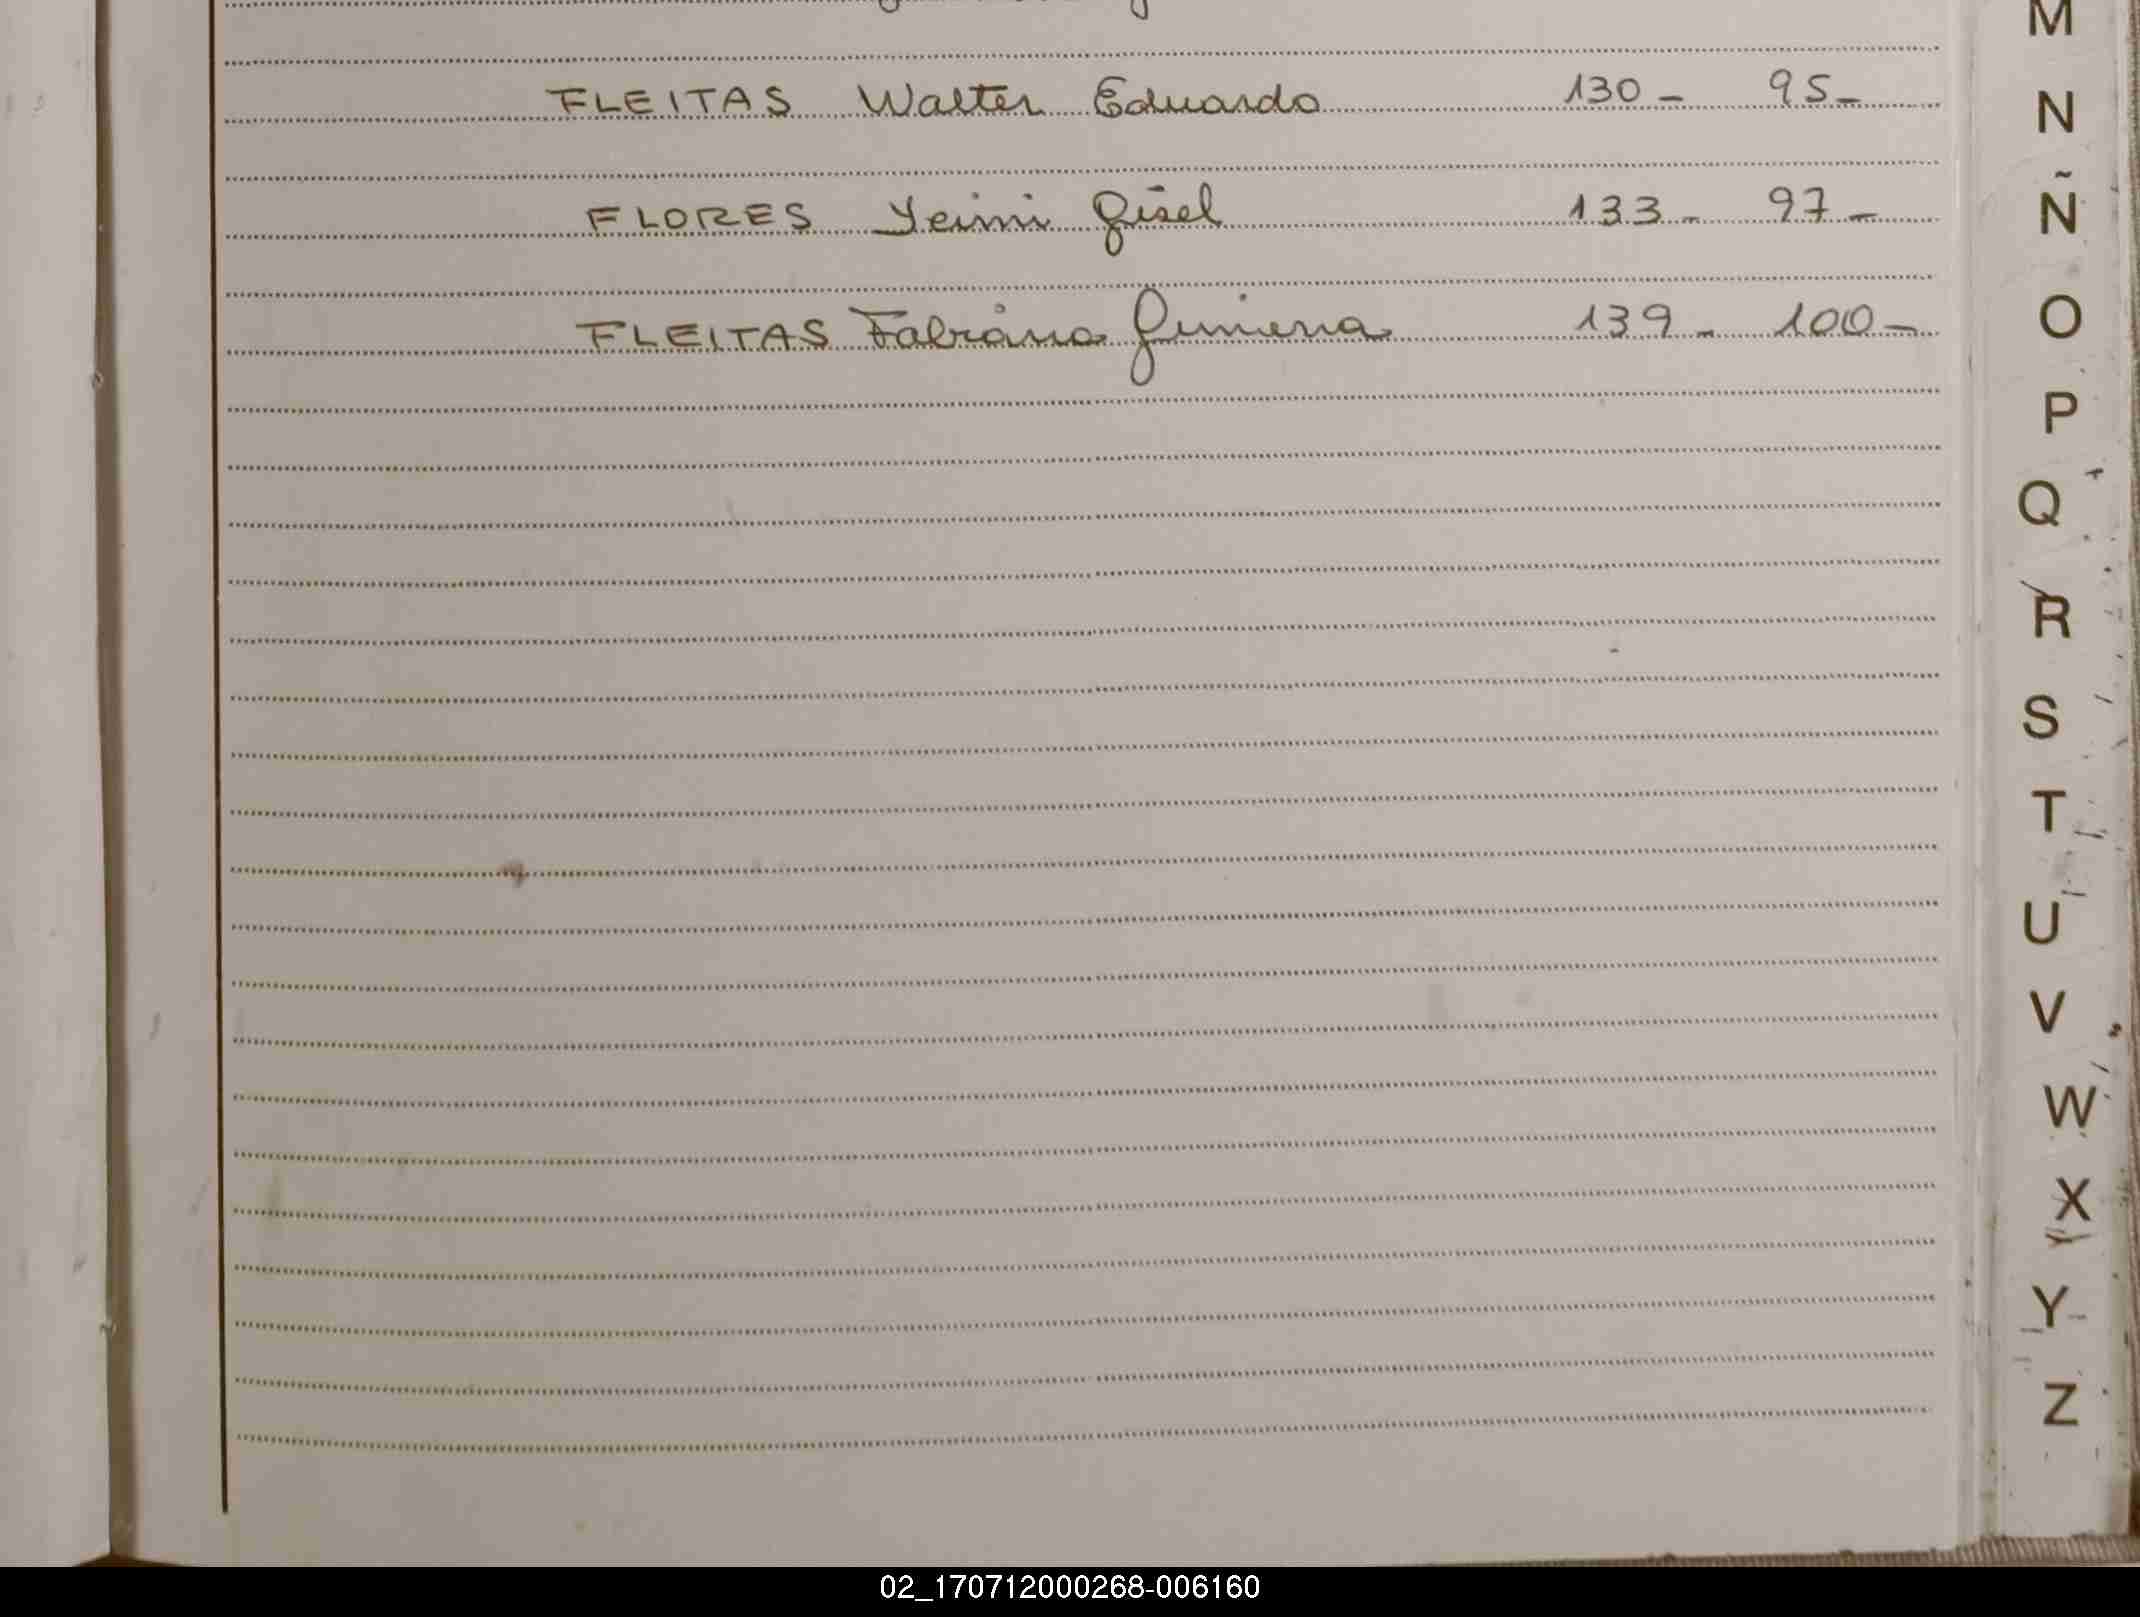 FLEITAS Walter Eduardo 130- 95-
FLORES Yeimi Gisel 133- 97-
FLEITAS Fabiána Jimena 139- 100-
M
N
Ñ
O
P
Q
R
S
T
U
V
W
X
Y
Z
02_170712000268-006160